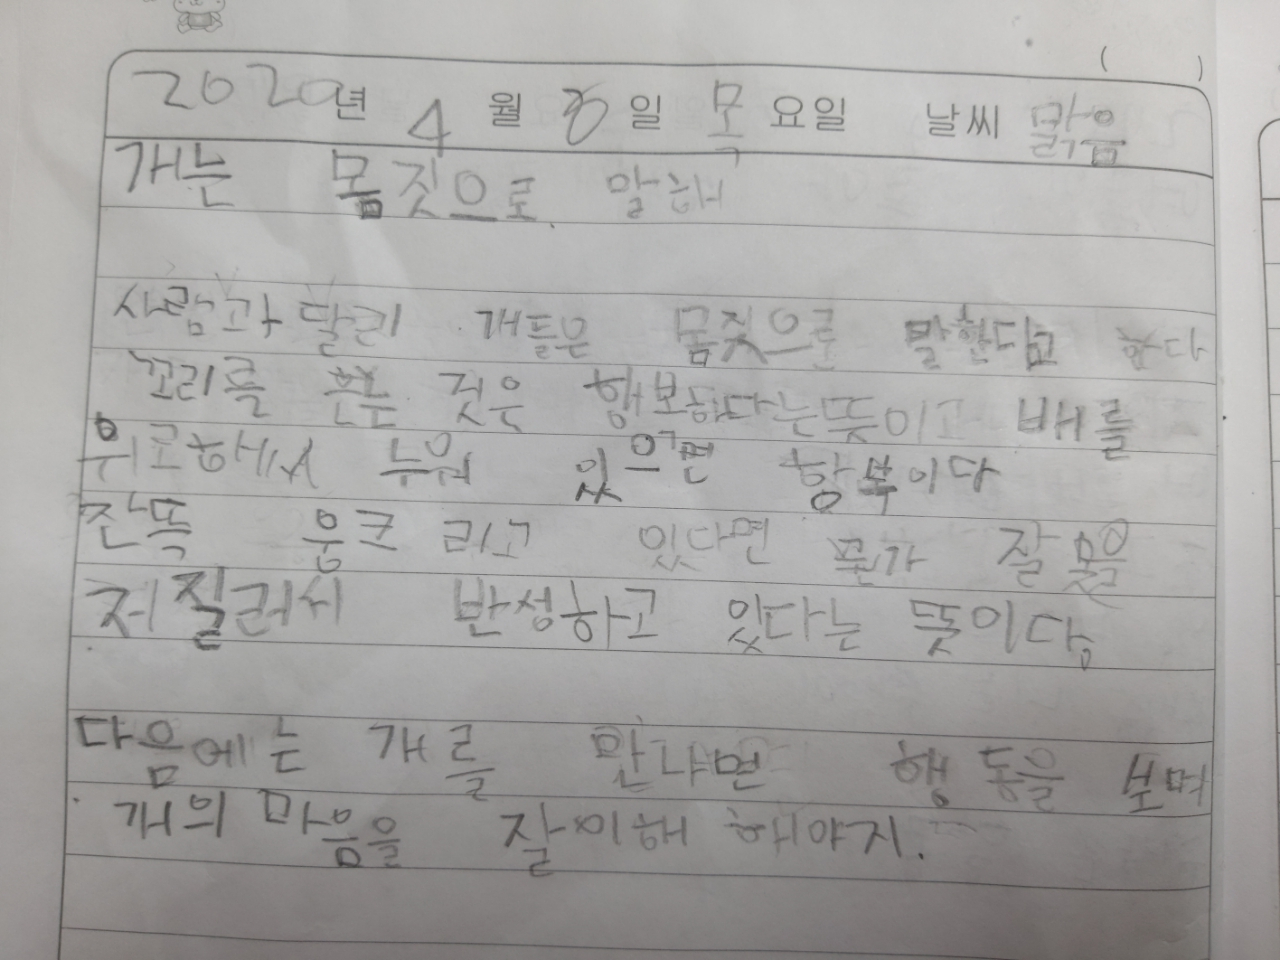 ( )
2020년 4 월 8 일 목 요일 날씨 맑음
개는 몸짓으로 말해
사람과 달리 개들은 몸짓으로 말한다고 한다
꼬리를 흔든 것은 행복하다는뜻이고 배를
위로해서 누워 있으면 항복이다
잔뜩 웅크 리고 있다면 뭔가 잘 못을
저질러서 반성하고 있다는 뜻이다.
다음에는 개를 만나면 행동을 보며
개의 마음을 잘이해 해야지.